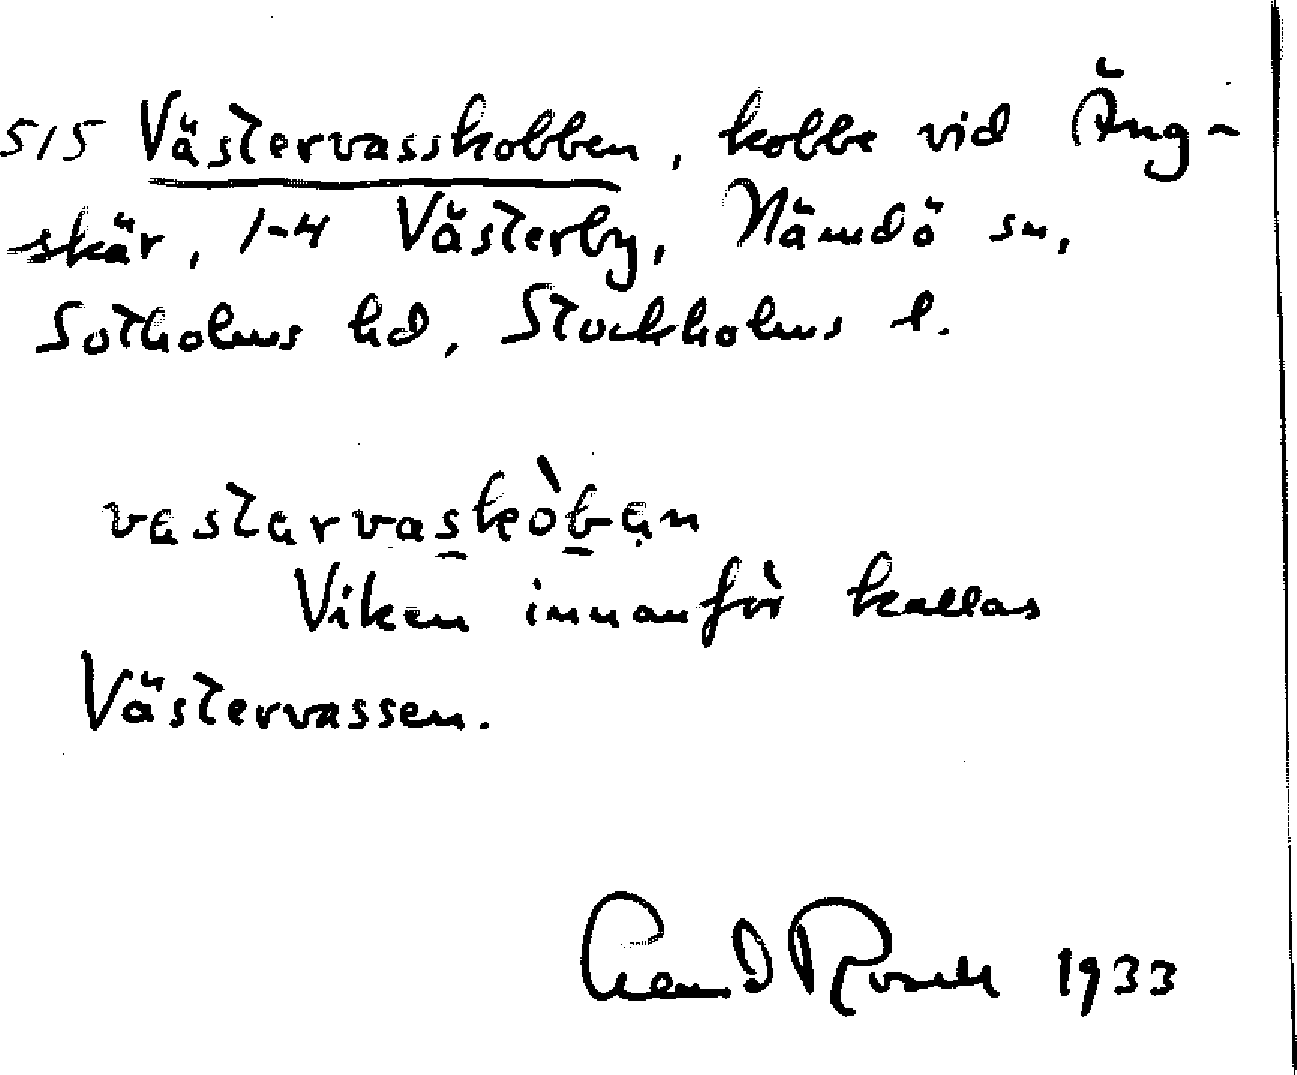 515 Västervasskobben, kobbe vid Äng-
skär, 1-4 Västerby, Nämdö sn,
Sotholms hd, Stockholms l.
vestervaskòben
Viken innanför kallas
Västervassen.
1933